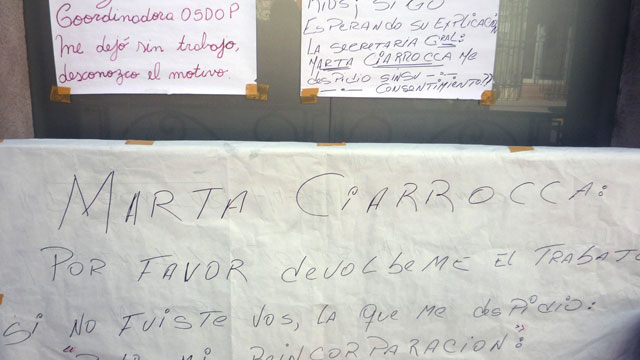 Coordinadora OSDOP
me dejó sin trabajo,
desconozco el motivo.
SIGO
ESPERANDO SU EXPLICACIÓN
LA SECRETARIA GRAL:
MARTA CIARROCCA ME
DESPIDIO SINSU
CONSENTIMIENTO??
MARTA CIARROCCA:
POR FAVOR devOLBEME EL TRABAJO
SI NO FUISTE VOS, LA QUE ME desPidio:
MI REINCORPARACION:"